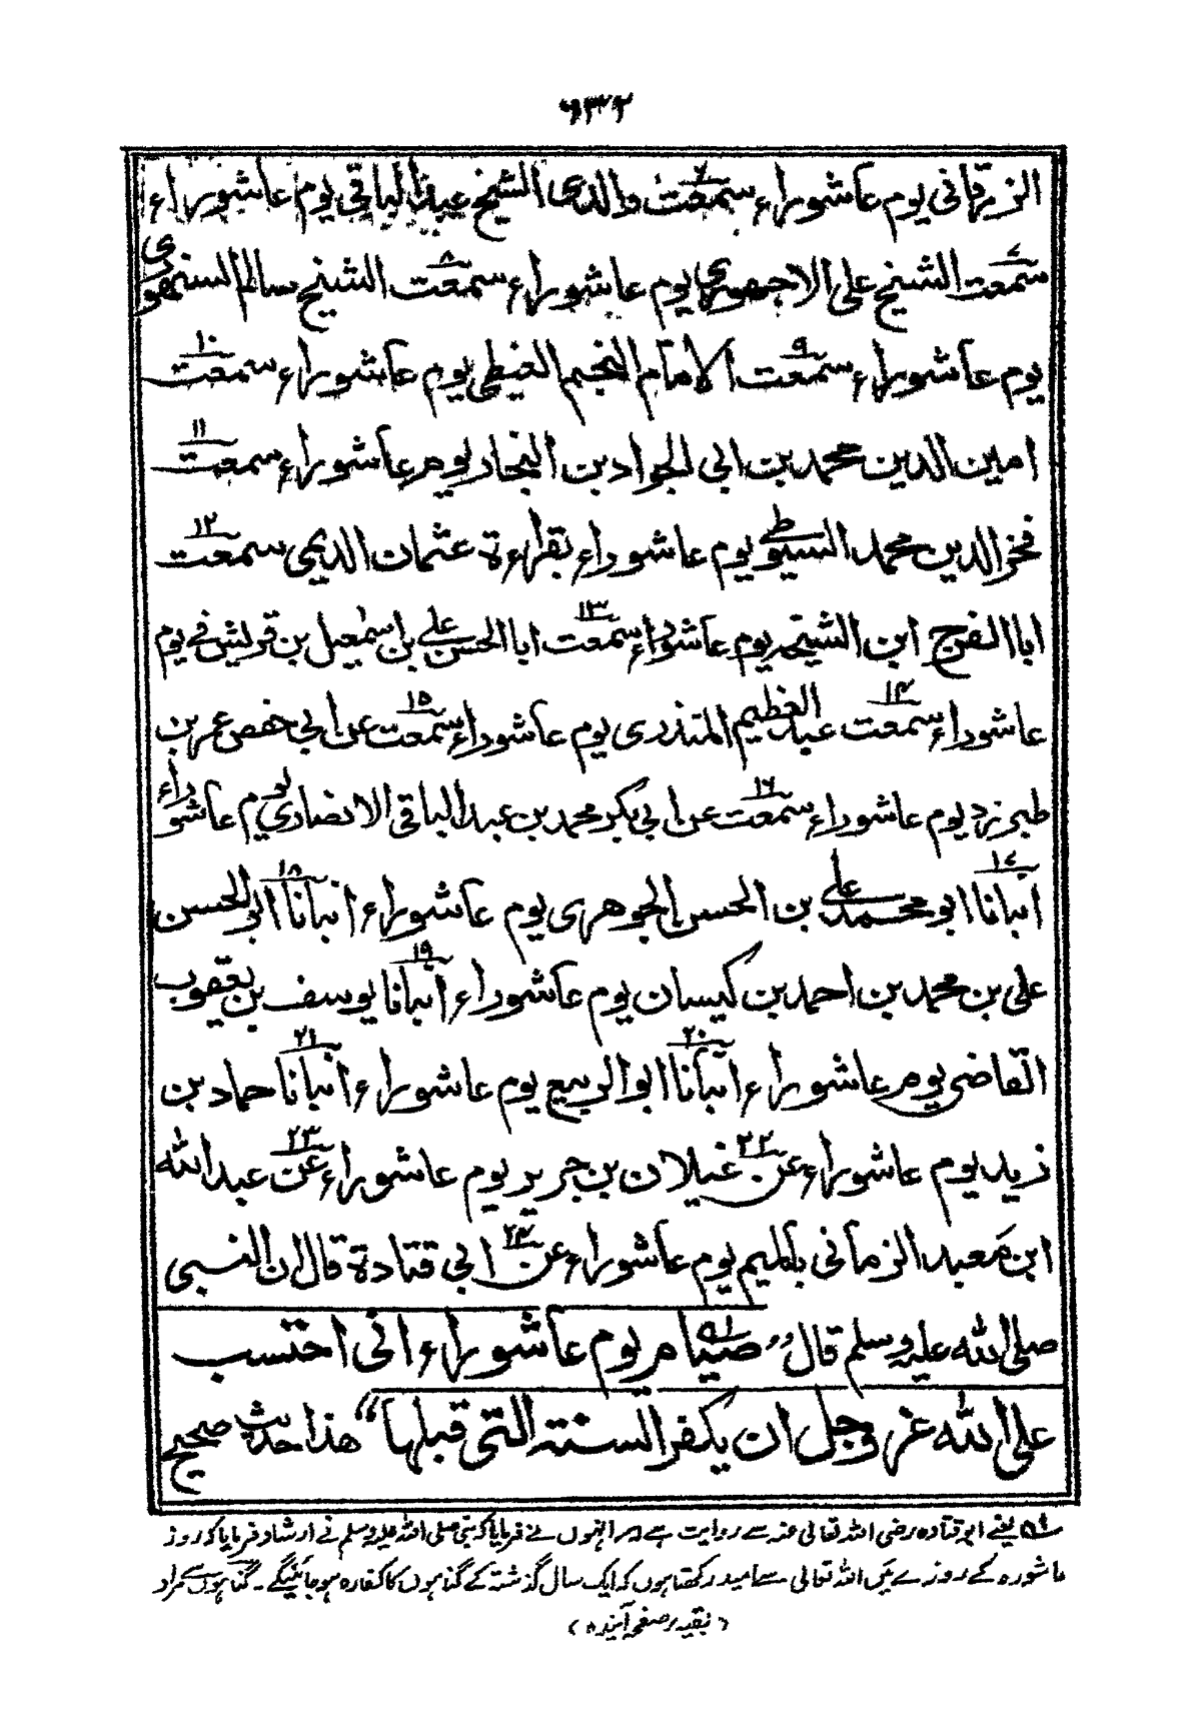 ٦٣٢
الزرقانی یوم عاشوراء سمعت والدی الشیخ عبد الباقی یوم عاشوراء
سمعت الشیخ علی الاجهوری یوم عاشوراء سمعت الشیخ سالم السنهوری
یوم عاشوراء سمعت الامام النجم الغیطی یوم عاشوراء سمعت
امین الدین محمد بن ابی الجواد بن النجار یوم عاشوراء سمعت
فخر الدین محمد السیوطی یوم عاشوراء بقراءة عثمان الدیمی سمعت
ابا الفرج ابن الشیخه یوم عاشوراء سمعت ابا الحسن علی بن اسمٰعیل بن قریش فی یوم
عاشوراء سمعت عبد العظیم المنذری یوم عاشوراء سمعت عن ابی حفص عمر بن
طبرزد یوم عاشوراء سمعت عن ابی بکر محمد بن عبد الباقی الانصاری یوم عاشوراء
انبانا ابو محمد علی بن الحسن الجوهری یوم عاشوراء انبانا ابو الحسن
علی بن محمد بن احمد بن کیسان یوم عاشوراء انبانا یوسف بن یعقوب
القاضی یوم عاشوراء انبانا ابو الربیع یوم عاشوراء انبانا حماد بن
زید یوم عاشوراء عن غیلان بن جریر یوم عاشوراء عن عبد الله
ابن معبد الزمانی بالمیم یوم عاشوراء عن ابی قتادة قال ان النبی
صلی الله علیه وسلم قال ”صیام یوم عاشوراء انی احتسب
علی الله عز وجل ان یکفر السنة التی قبلها“ هذا حدیث صحیح
یعنے ابوقتادہ رضی اللہ تعالیٰ عنہ سے روایت ہے اور انہوں نے فرمایا کہ نبی صلی اللہ علیہ وسلم نے ارشاد فرمایا کہ روز
عاشورہ کے روزے میں اللہ تعالی سے امید رکھتا ہوں کہ ایک سال گذشتہ کے گناہوں کا کفارہ ہو جائینگے۔ گناہوں سے مراد
(بقیہ بر صفحہ آیندہ)